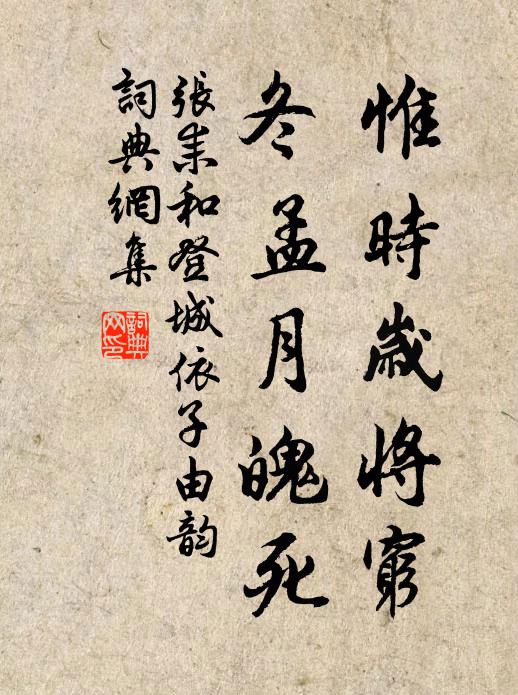 惟時歲將窮
冬孟月魄死
張耒和登城依子由韵
詞典網集
詞典網印